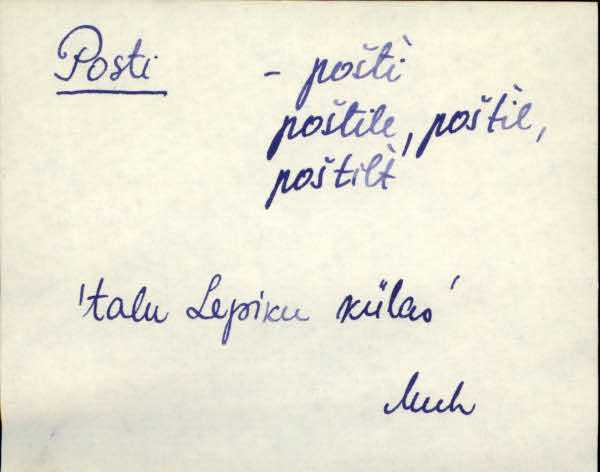 Posti - pošti
poštile, poštil,
poštilt
'talu Lepiku külas'
Muh